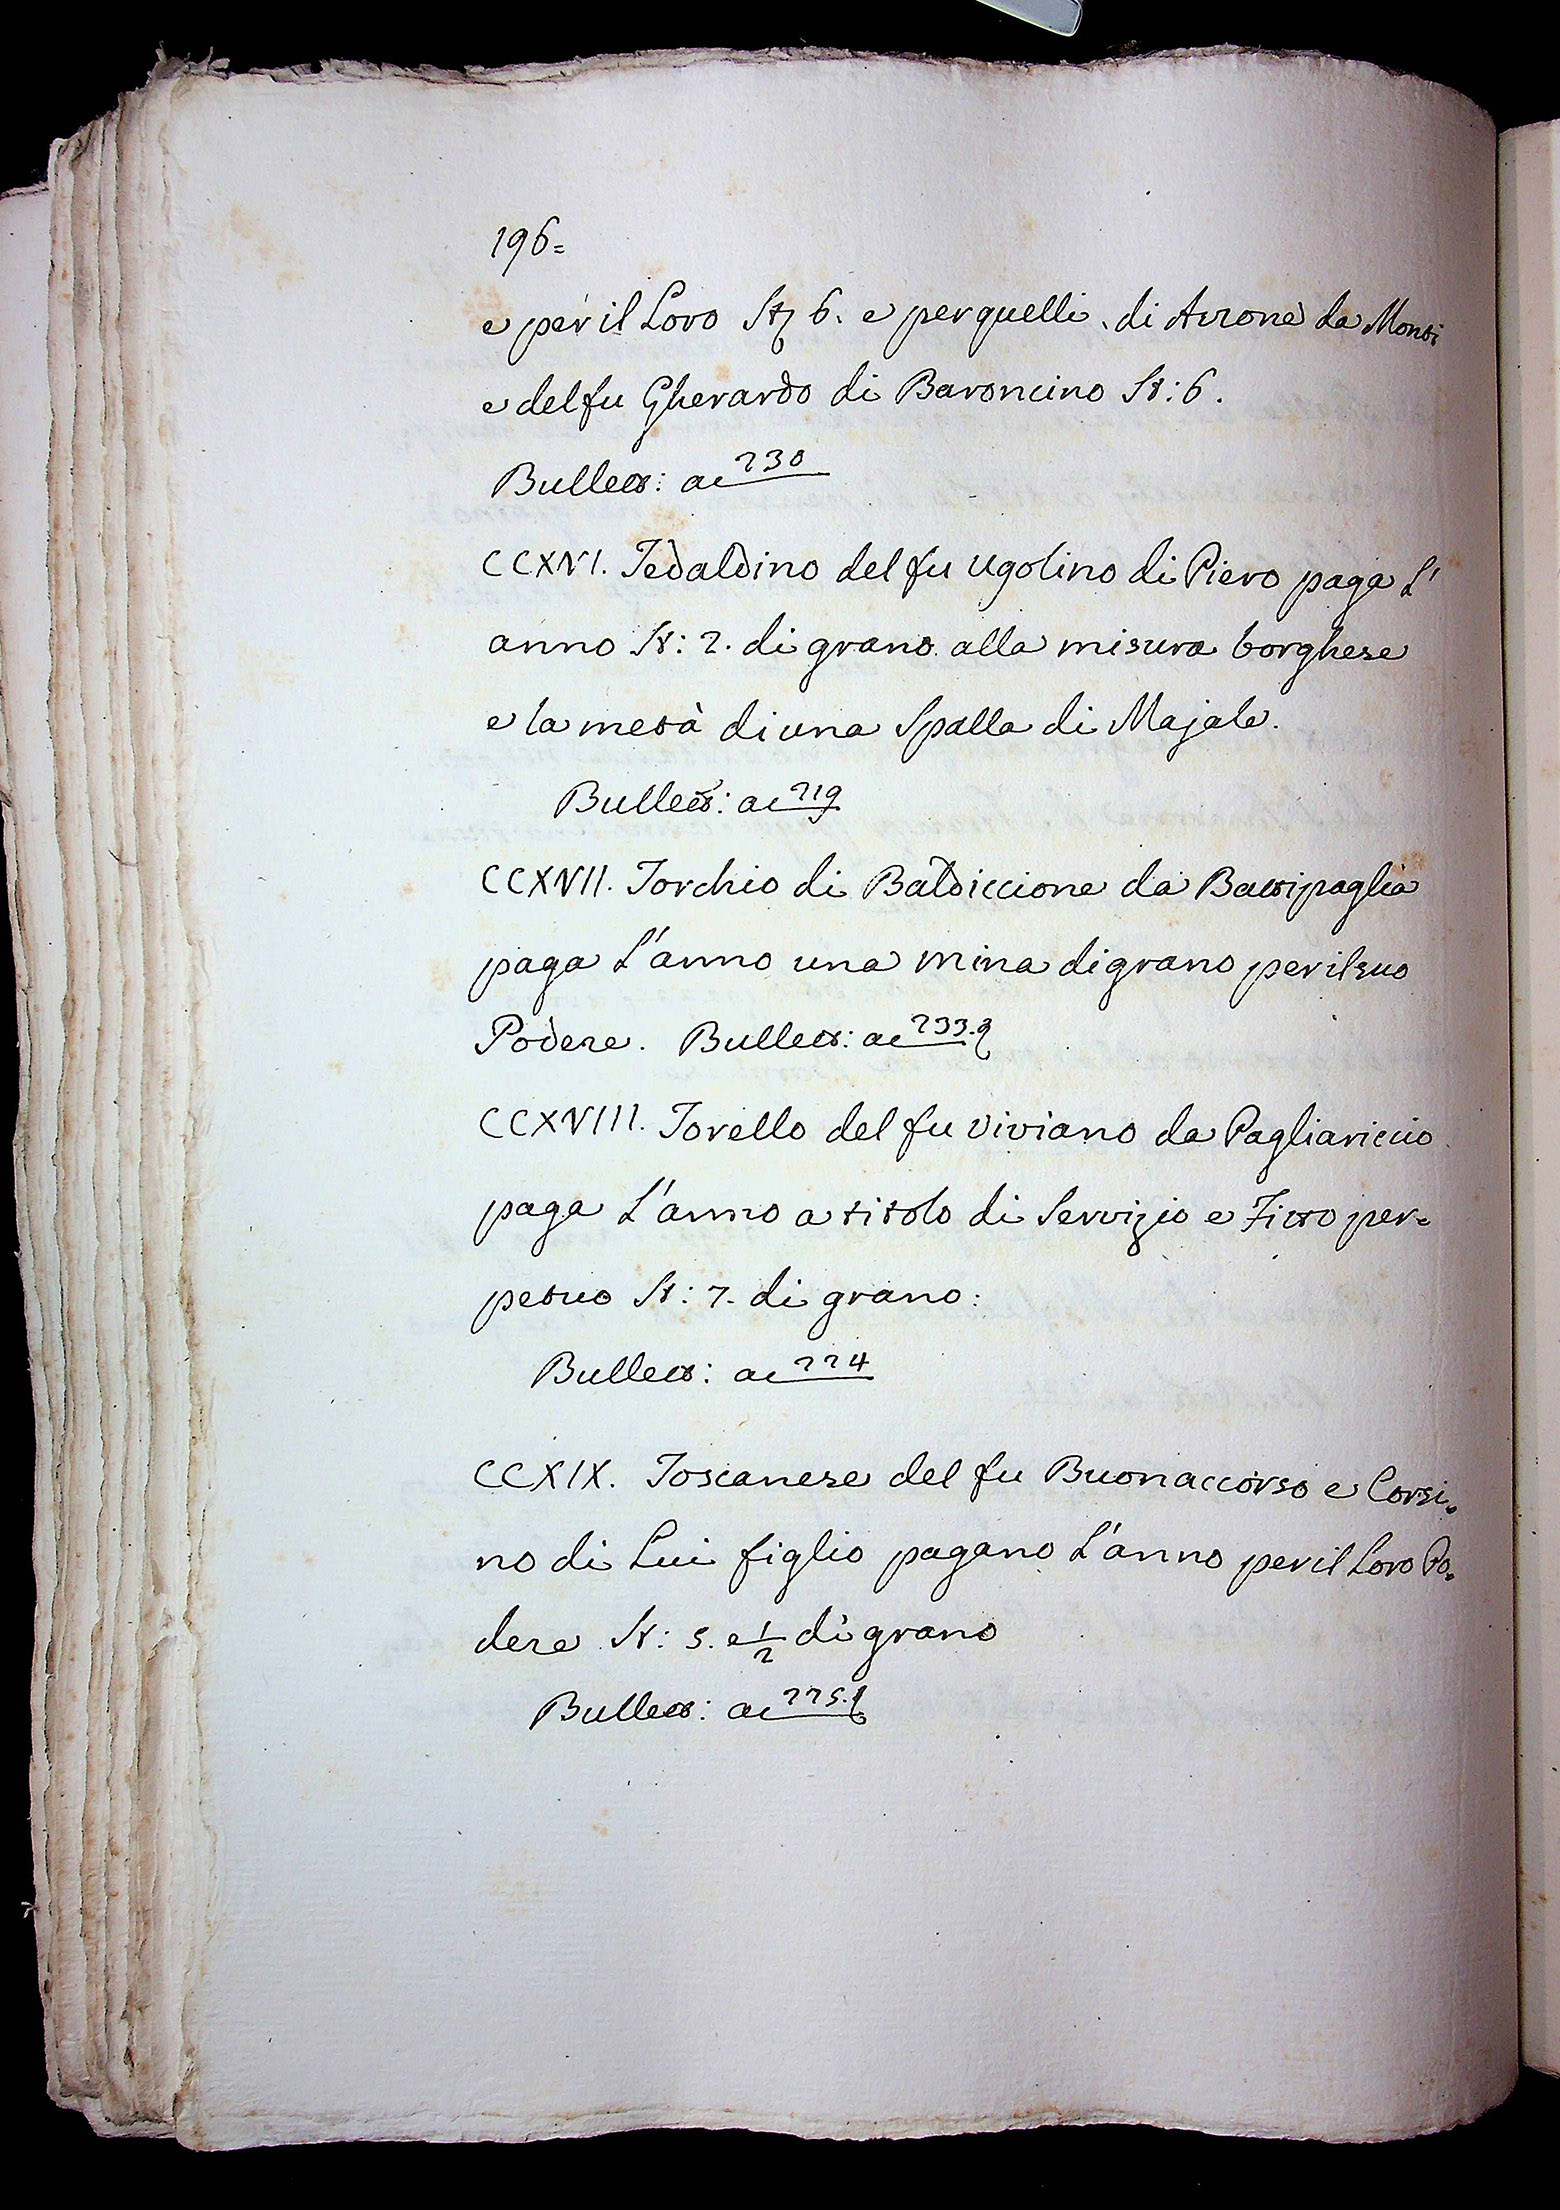 196=
e per il Loro St 6. e per quelli di Arrone da Monti
e del fu Gherardo di Baroncino St: 6.
Bullett: ac 230
CCXVI. Tedaldino del fu Ugolino di Piero paga L'
anno St: 2. di grano alla misura borghese
e la metà di una Spalla di Majale.
Bullett: ac 219
CCXVII. Torchio di Baldiccione da Battipaglia
paga L'anno una mina di grano per il suo
Podere. Bullett: ac 233.
CCXVIII. Torello del fu Viviano da Pagliariccio
paga L'anno a titolo di Servizio e Fitto per=
petuo St: 7. di grano:
Bullett: ac 224
CCXIX. Toscanese del fu Buonaccorso e Corsi=
no di Lui figlio pagano L'anno per il Loro Po=
dere St: 5. e 1/2 di grano
Bullett: ac 225.